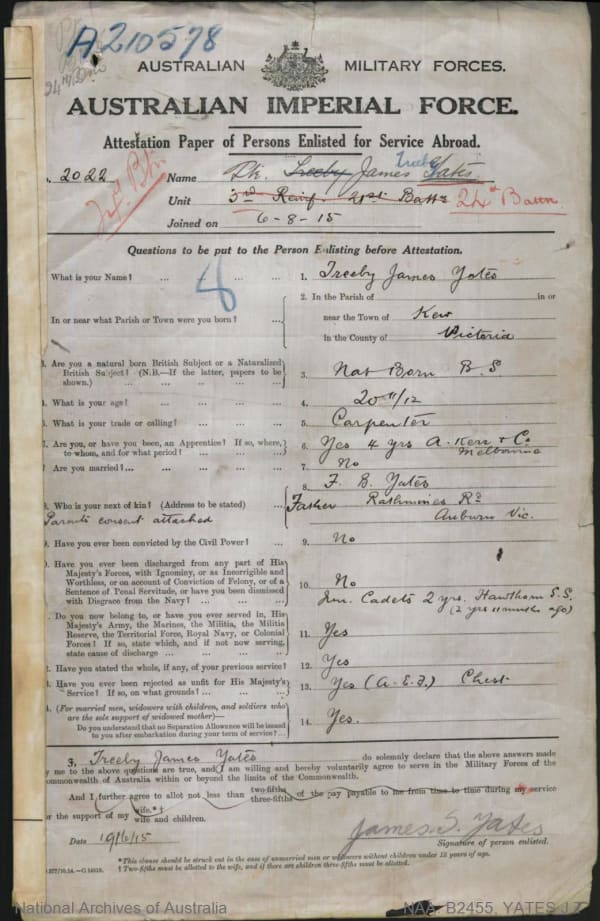 A210578
24th Divn
AUSTRALIAN MILITARY FORCES.
AUSTRALIAN IMPERIAL FORCE.
Attestation Paper of Persons Enlisted for Service Abroad.
2022 Name Pte. Treeby James Treeby Yates
Inf. Bn
Unit 3rd Reinf. 21st Battn 24th Battn
Joined on 6-8-15
Questions to be put to the Person Enlisting before Attestation.
8
What is your Name? ... ... ... 1. Treeby James Yates
In or near what Parish or Town were you born? ... 2. In the Parish of in or
near the Town of Kew
in the County of Victoria
3. Are you a natural born British Subject or a Naturalized
British Subject? (N.B.—If the latter, papers to be
shown.) ... ... ... ... 3. Nat Born B.S.
4. What is your age? ... ... ... ... 4. 20 11/12
5. What is your trade or calling? ... ... ... 5. Carpenter
Are you, or have you been, an Apprentice? If so, where,
to whom, and for what period? ... ... ... 6. Yes 4 yrs A. Kerr & Co
Melbourne
7 Are you married? ... ... ... ... 7. No
8. F. B. Yates
8 Who is your next of kin? (Address to be stated) ... Father Rathmines Rd
Auburn Vic.
Parents consent attached
9. Have you ever been convicted by the Civil Power? ... 9. No
Have you ever been discharged from any part of His
Majesty's Forces, with Ignominy, or as Incorrigible and
Worthless, or on account of Conviction of Felony, or of a
Sentence of Penal Servitude, or have you been dismissed
with Disgrace from the Navy? ... ... ... 10. No
Do you now belong to, or have you ever served in, His
Majesty's Army, the Marines, the Militia, the Militia
Reserve, the Territorial Force, Royal Navy, or Colonial
Forces? If so, state which, and if not now serving,
state cause of discharge ... ... ...
Jun. Cadets 2 yrs. Hawthorn S.S.
(2 yrs 11 months ago)
11. Yes
Have you stated the whole, if any, of your previous service? 12. Yes
Have you ever been rejected as unfit for His Majesty's
Service? If so, on what grounds? ... ... ... 13. Yes (A.I.F.) Chest
(For married men, widowers with children, and soldiers who
are the sole support of widowed mother)—
Do you understand that no Separation Allowance will be issued
to you after embarkation during your term of service? ... 14. Yes.
I, Treeby James Yates do solemnly declare that the above answers made
by me to the above questions are true, and I am willing and hereby voluntarily agree to serve in the Military Forces of the
Commonwealth of Australia within or beyond the limits of the Commonwealth.
And I further agree to allot not less than two-fifths three-fifths of the pay payable to me from time to time during my service
for the support of my wife.*† wife and children.
Date 19/6/15
James. T. Yates
Signature of person enlisted.
*This clause should be struck out in the case of unmarried men or widowers without children under 18 years of age.
† Two-fifths must be allotted to the wife, and if there are children three-fifths must be allotted.
National Archives of Australia
NAA: B2455, YATES J T